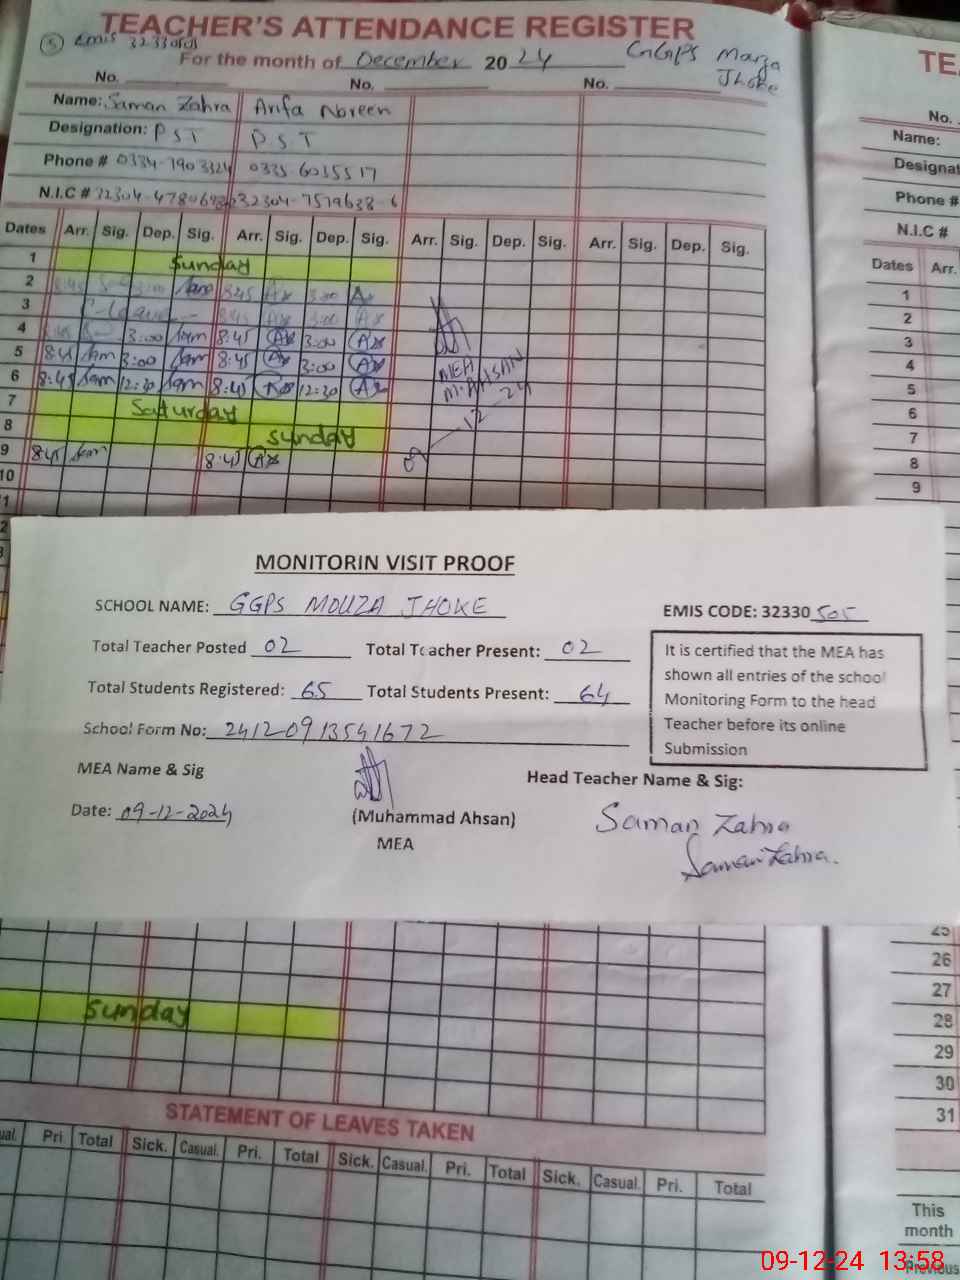 TEACHER'S ATTENDANCE REGISTER
5 Emis 32330505
For the month of December 20 24 GGPS Moza Jhoke
No. No. No.
Name: Saman Zahra Arifa Noreen
Designation: PST PST
Phone # 0334-7903324 0335-6035517
N.I.C # 32304-4780643 32304-7579638-6
Dates Arr. Sig. Dep. Sig. Arr. Sig. Dep. Sig. Arr. Sig. Dep. Sig. Arr. Sig. Dep. Sig.
1 Sunday
2 8:45 3:00 Sam 8:45 Ax 3:00 Ax
3 C-Leave 8:45 Ax 3:00 Ax
4 8:45 3:00 Sam 8:45 Ax 3:00 Ax
5 8:45 Sam 3:00 Sam 8:45 Ax 3:00 Ax
MEA
6 8:45 Sam 12:30 Sam 8:45 Ax 12:30 Ax
M. AHSAN
7 Saturday
09-12-24
8 Sunday
9 8:45 Sam 8:45 Ax
10
MONITORIN VISIT PROOF
SCHOOL NAME: GGPS MOUZA JHOKE
EMIS CODE: 32330 505
Total Teacher Posted 02 Total Teacher Present: 02
Total Students Registered: 65 Total Students Present: 64
School Form No: 24120913541672
It is certified that the MEA has
shown all entries of the school
Monitoring Form to the head
Teacher before its online
Submission
MEA Name & Sig
Head Teacher Name & Sig:
Date: 09-12-2024
(Muhammad Ahsan)
MEA
Saman Zahra
Saman Zahra.
Sunday
STATEMENT OF LEAVES TAKEN
Pri. Total Sick. Casual. Pri. Total Sick. Casual. Pri. Total Sick. Casual. Pri. Total
TE
No.
Name:
Designat
Phone #
N.I.C #
Dates Arr.
1
2
3
4
5
6
7
8
9
25
26
27
28
29
30
31
This
month
Previous
09-12-24 13:58